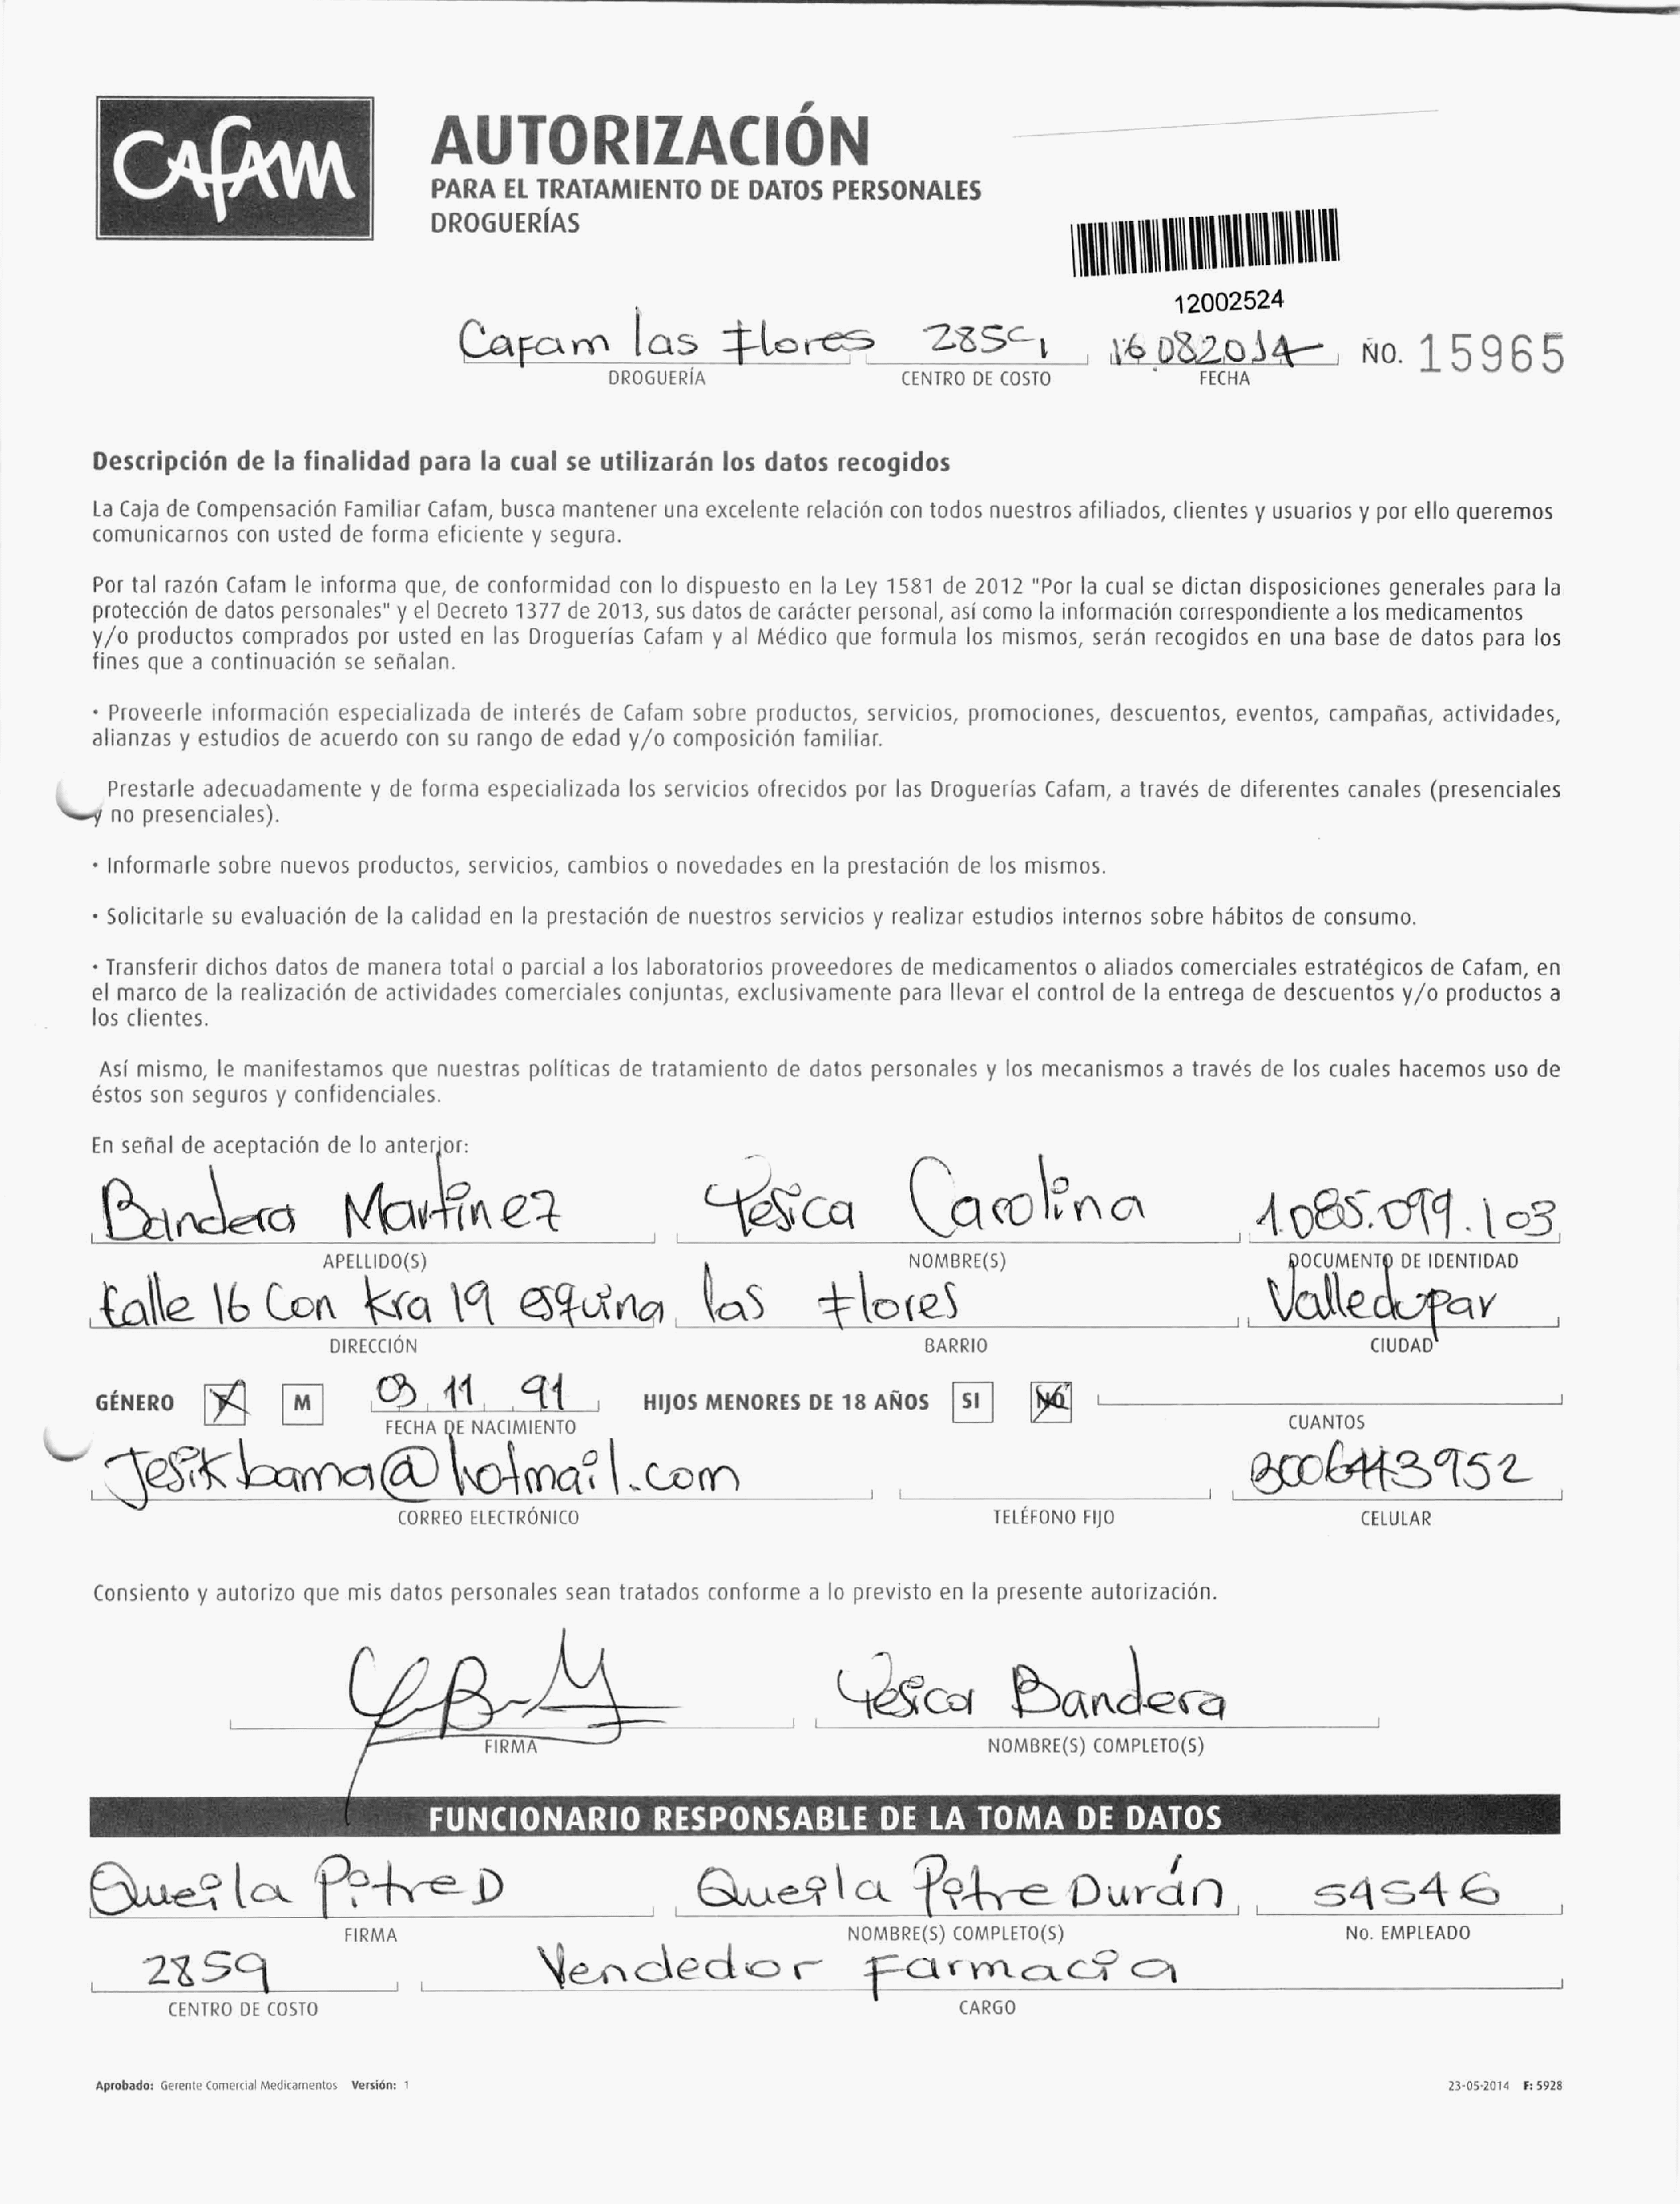 Cafam
AUTORIZACIÓN
PARA EL TRATAMIENTO DE DATOS PERSONALES
DROGUERÍAS
12002524
Cafam las Flores 2859 16 08 2014 No. 15965
DROGUERÍA CENTRO DE COSTO FECHA
Descripción de la finalidad para la cual se utilizarán los datos recogidos
La Caja de Compensación Familiar Cafam, busca mantener una excelente relación con todos nuestros afiliados, clientes y usuarios y por ello queremos
comunicarnos con usted de forma eficiente y segura.
Por tal razón Cafam le informa que, de conformidad con lo dispuesto en la Ley 1581 de 2012 "Por la cual se dictan disposiciones generales para la
protección de datos personales" y el Decreto 1377 de 2013, sus datos de carácter personal, así como la información correspondiente a los medicamentos
y/o productos comprados por usted en las Droguerías Cafam y al Médico que formula los mismos, serán recogidos en una base de datos para los
fines que a continuación se señalan.
· Proveerle información especializada de interés de Cafam sobre productos, servicios, promociones, descuentos, eventos, campañas, actividades,
alianzas y estudios de acuerdo con su rango de edad y/o composición familiar.
Prestarle adecuadamente y de forma especializada los servicios ofrecidos por las Droguerías Cafam, a través de diferentes canales (presenciales
y no presenciales).
· Informarle sobre nuevos productos, servicios, cambios o novedades en la prestación de los mismos.
· Solicitarle su evaluación de la calidad en la prestación de nuestros servicios y realizar estudios internos sobre hábitos de consumo.
· Transferir dichos datos de manera total o parcial a los laboratorios proveedores de medicamentos o aliados comerciales estratégicos de Cafam, en
el marco de la realización de actividades comerciales conjuntas, exclusivamente para llevar el control de la entrega de descuentos y/o productos a
los clientes.
Así mismo, le manifestamos que nuestras políticas de tratamiento de datos personales y los mecanismos a través de los cuales hacemos uso de
éstos son seguros y confidenciales.
En señal de aceptación de lo anterior:
Bandera Martinez Yesica Carolina 1.085.099.103
APELLIDO(S) NOMBRE(S) DOCUMENTO DE IDENTIDAD
Calle 16 Con Kra 19 esquina las Flores Valledupar
DIRECCIÓN BARRIO CIUDAD
GÉNERO X M 03 11 91 HIJOS MENORES DE 18 AÑOS SI NO
FECHA DE NACIMIENTO CUANTOS
Jesikbama@hotmail.com 3006443952
CORREO ELECTRÓNICO TELÉFONO FIJO CELULAR
Consiento y autorizo que mis datos personales sean tratados conforme a lo previsto en la presente autorización.
Yesica Bandera
FIRMA NOMBRE(S) COMPLETO(S)
FUNCIONARIO RESPONSABLE DE LA TOMA DE DATOS
Queila Pitre D Queila Pitre Durán 54546
FIRMA NOMBRE(S) COMPLETO(S) No. EMPLEADO
2859 Vendedor Farmacia
CENTRO DE COSTO CARGO
Aprobado: Gerente Comercial Medicamentos Versión: 1 23-05-2014 F: 5928